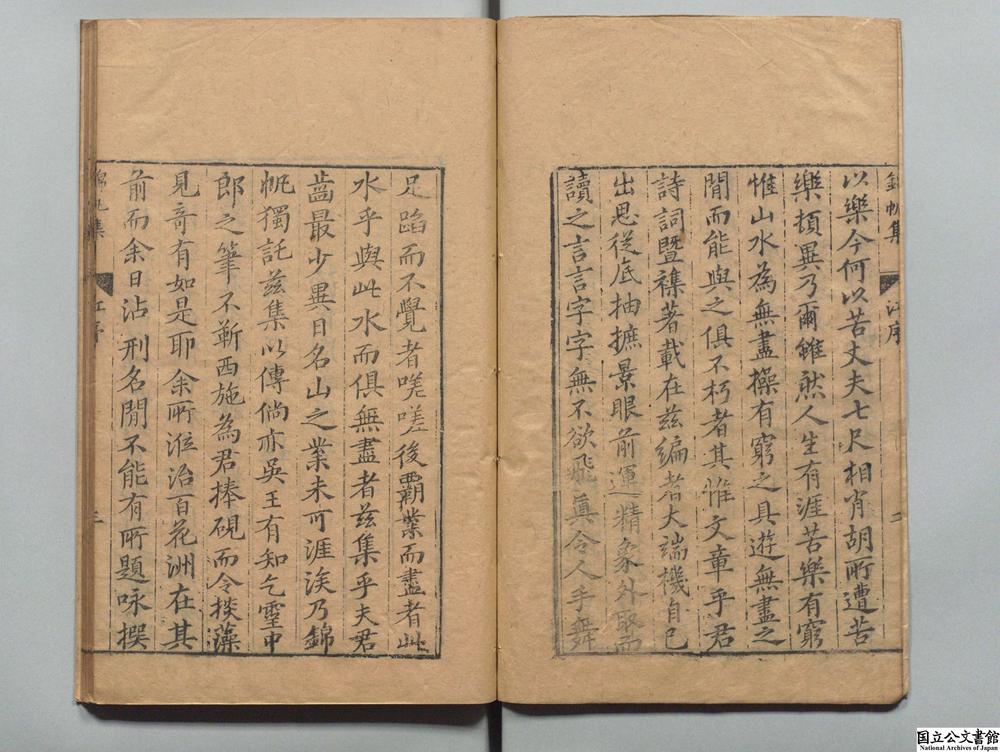 錦帆集 江序 二
以樂今何以苦丈夫七尺相肖胡所遭苦
樂頓異乃爾雖然人生有涯苦樂有窮
惟山水為無盡操有窮之具遊無盡之
間而能與之俱不朽者其惟文章乎君
詩詞暨襍著載在兹編者大端機自己
出思從底抽摭景眼前運精象外取而
讀之言言字字無不欲飛真令人手舞
足蹈而不覺者嗟嗟後霸業而盡者此
水乎與此水而俱無盡者兹集乎夫君
齒最少異日名山之業未可涯涘乃錦
帆獨託兹集以傳倘亦吳王有知乞靈中
郎之筆不靳西施為君捧硯而令掞藻
見奇有如是耶余所涖治百花洲在其
前而余日沾沾刑名間不能有所題咏撰
錦帆集 江序 三
国立公文書館
National Archives of Japan